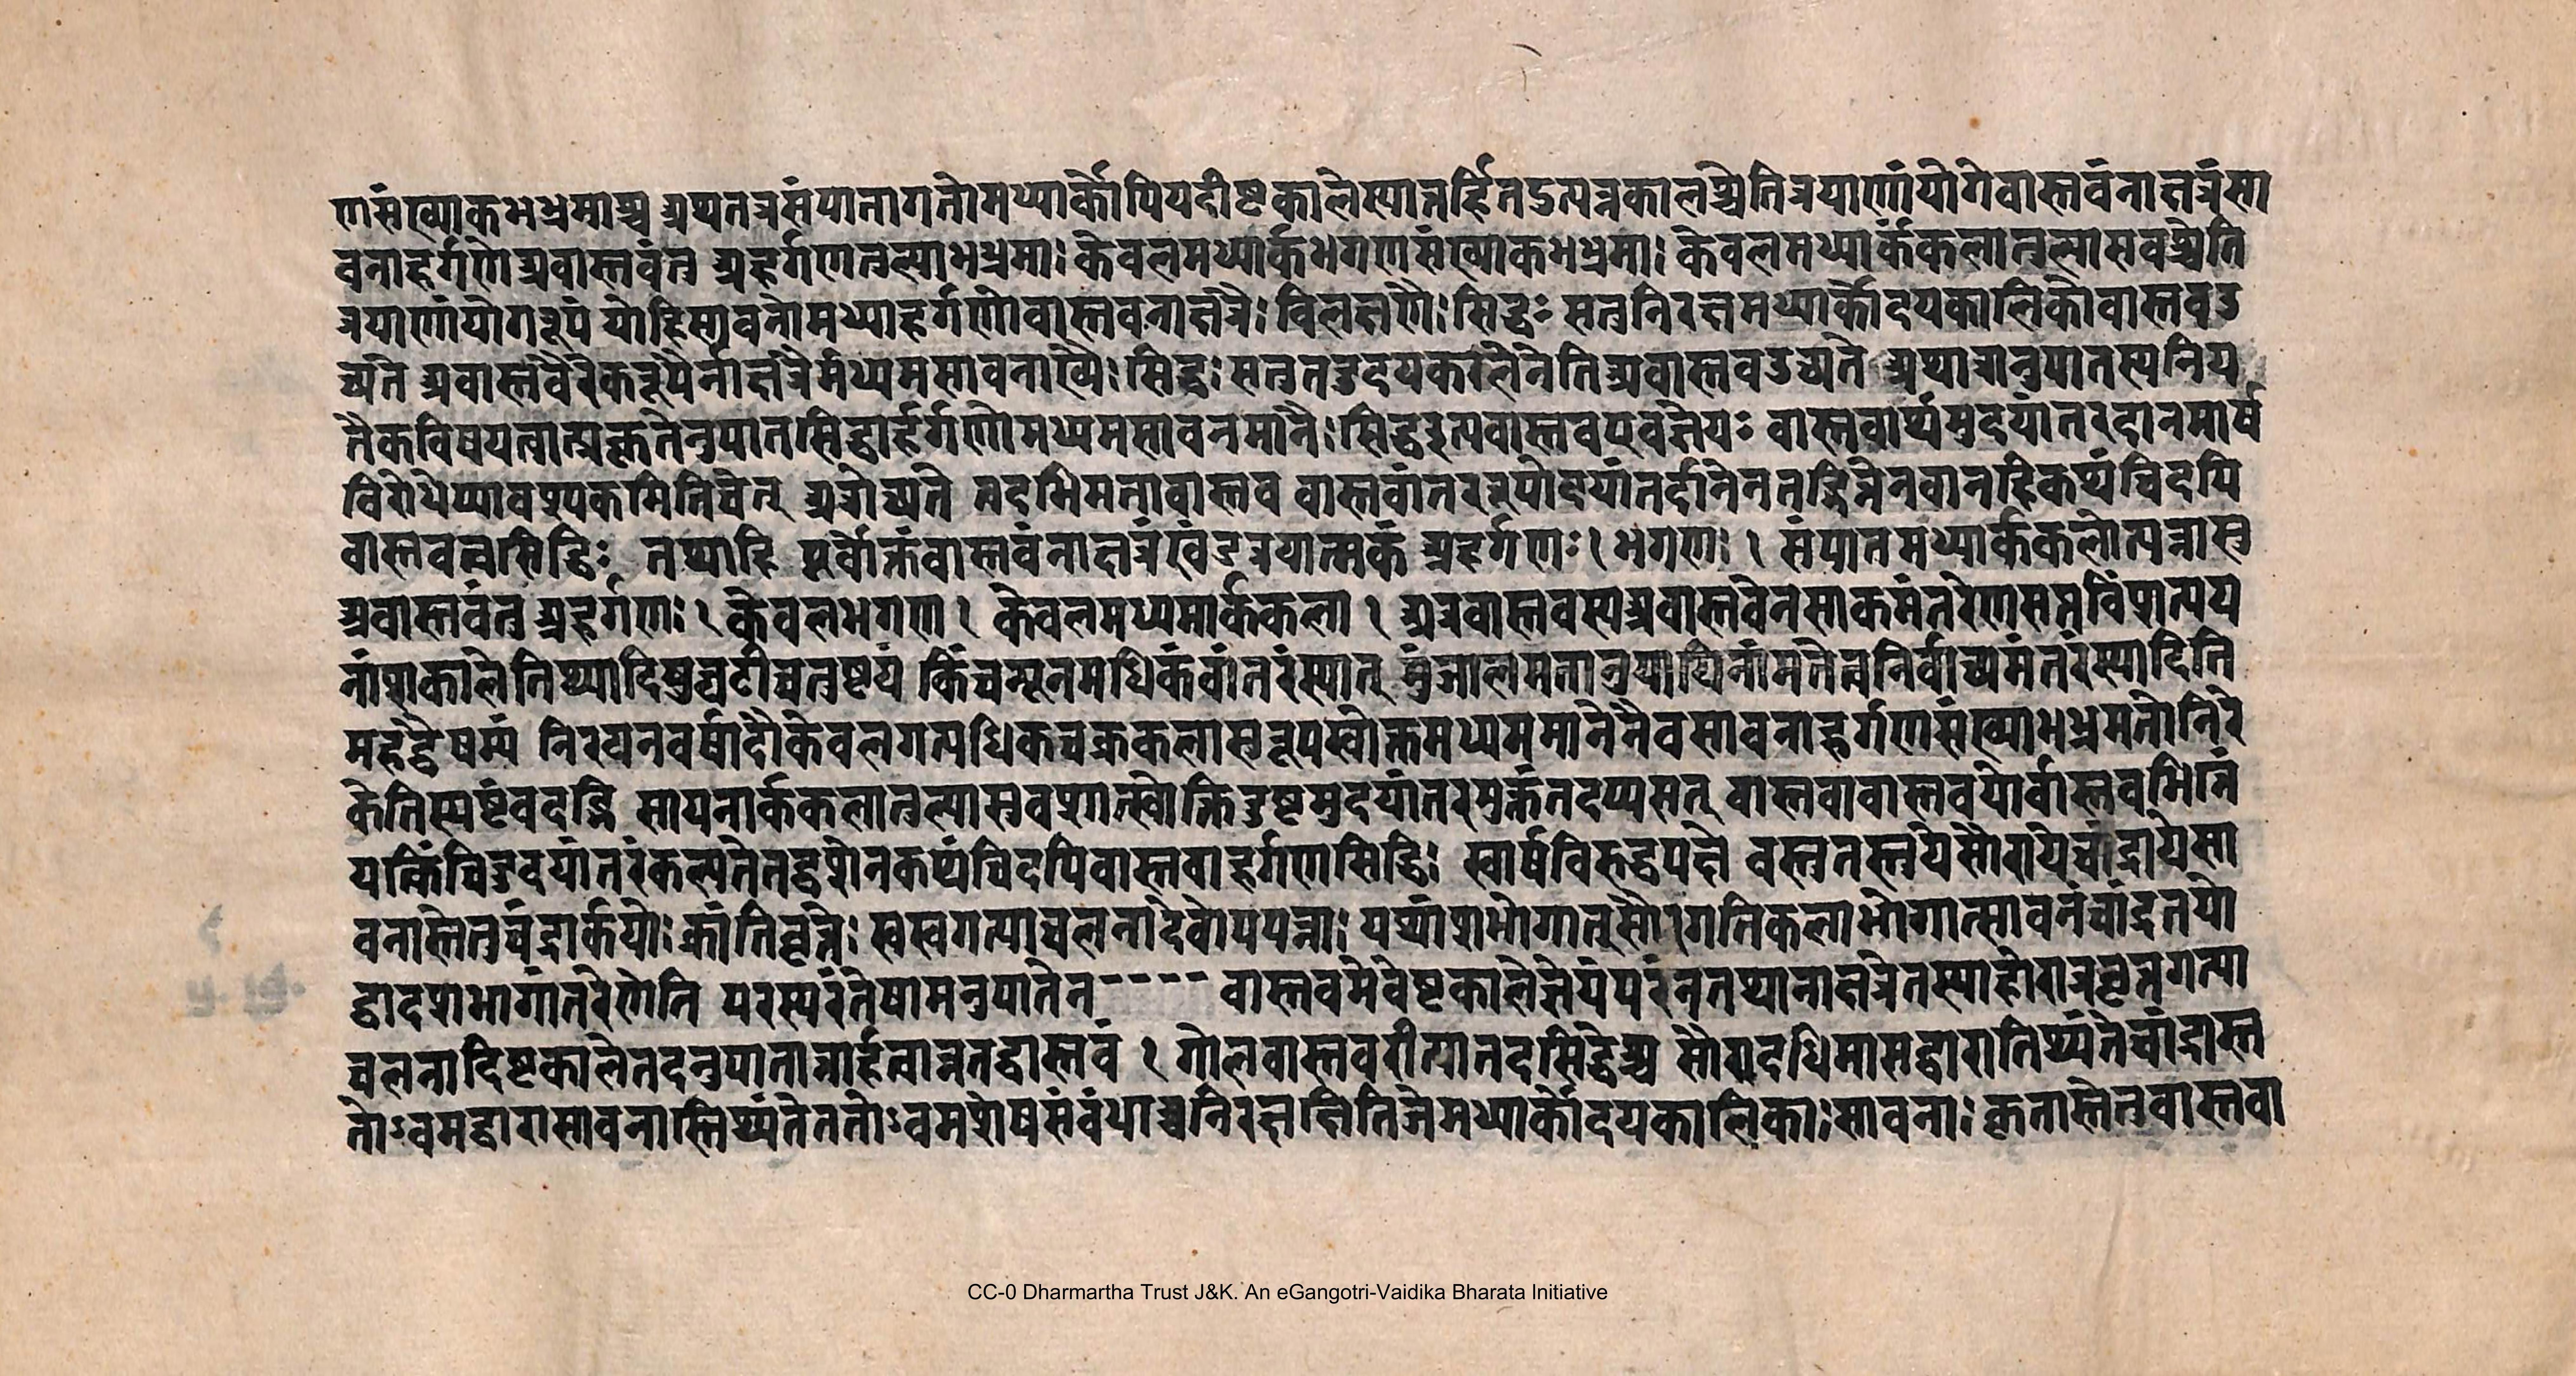 णसंख्याकभभ्रमाश्च अथतत्रसंपातागतोमध्यार्कोपियदीष्टकालेस्यात्तर्हितउत्पन्नकालश्चेतित्रयाणांयोगेवास्तवंनाक्षत्रंसा
वनाहर्गणेअवास्तवंतु अहर्गणतुल्याभभ्रमाः केवलमध्यार्कभगणसंख्याकभभ्रमाः केवलमध्यार्ककलातुल्यासवश्चेति
त्रयाणांयोगरूपं योहिसावनोमध्याहर्गणोवास्तवनाक्षत्रैः विलक्षणैः सिद्धः सतुनिरक्षमध्यार्कोदयकालिकोवास्तवउ
च्यते अवास्तवैरेकरूपैर्नाक्षत्रैर्मध्यमसावनाख्यैः सिद्धः सतुतदुदयकालेनेतिअवास्तवउच्यते अथात्रानुपातस्यनिय
तैकविषयत्वात्प्रकृतेनुपातसिद्धार्हर्गणोमध्यमसावनमानैः सिद्धइत्यवास्तवएवज्ञेयः वास्तवार्थमुदयांतरदानमार्ष
विरोधेप्यावश्यकमितिचेत् अत्रोच्यते तदभिमतावास्तव वास्तवांतररूपोदयांतर्दानेनतद्भिन्नेनवानहिकथंचिदपि
वास्तवत्वसिद्धिः तथाहि पूर्वोक्तंवास्तवंनाक्षत्रंखंडत्रयात्मकं अहर्गणः । भगणः । संपातमध्यार्ककलोत्पन्नास्व
अवास्तवंतु अहर्गणः । केवलभगण । केवलमध्यमार्ककला । अत्रवास्तवस्यअवास्तवेनसाकमंतरेणसप्तविंशत्यय
नांशकालेतिथ्यादिषुघटीचतुष्टयं किंचन्यूनमधिकंवांतरंस्यात् मुंजालमतानुयायिनांमतेत्वनिर्वाच्यमंतरंस्यादिति
महद्वैषम्यं निरयनवर्षादौकेवलगत्यधिकचक्रकलास्वरूपस्वोक्तमध्यममानेनैवसावनाहर्गणसंख्याभभ्रमतोनिरे
केतिस्पष्टंवदद्भि सायनार्ककलातुल्यासवशात्स्वोक्तिदुष्टमुदयांतरमुक्तंतदप्यसत् वास्तवावास्तवयोर्वास्तवभिन्नं
यत्किंचिदुदयांतरंकल्पतेतद्वशेनकथंचिदपिवास्तवाहर्गणसिद्धिः स्वार्षविरुद्धपक्षे वस्तुतस्तुयेसौरायेचांद्रायेसा
वनास्तेतुचंद्रार्कयोः क्रांतिवृत्ते स्वस्वगत्याचलनादेवोपपन्नाः यथांशभोगात्सौरागतिकलाभोगात्सावनंचांद्रतयो
द्वादशभागांतरेणेति परस्परंतेषामनुपातेन---- वास्तवमेवेष्टकालेज्ञेयंपरंनतथानाक्षत्रेतस्याहोरात्रवृत्तगत्या
चलनादिष्टकालेतदनुपातानार्हत्वान्नतद्वास्तवं । गोलवास्तवरीत्यातदसिद्धेश्च सौरादधिमासद्वारातिथ्यंतेचांद्रास्त
तोऽवमद्वारासावनास्तिथ्यंतेततोऽवमशेषसंबंधाच्चनिरक्षक्षितिजेमध्यार्कोदयकालिकाः सावनाः कृतास्तेतुवास्तवा
CC-0 Dharmartha Trust J&K. An eGangotri-Vaidika Bharata Initiative